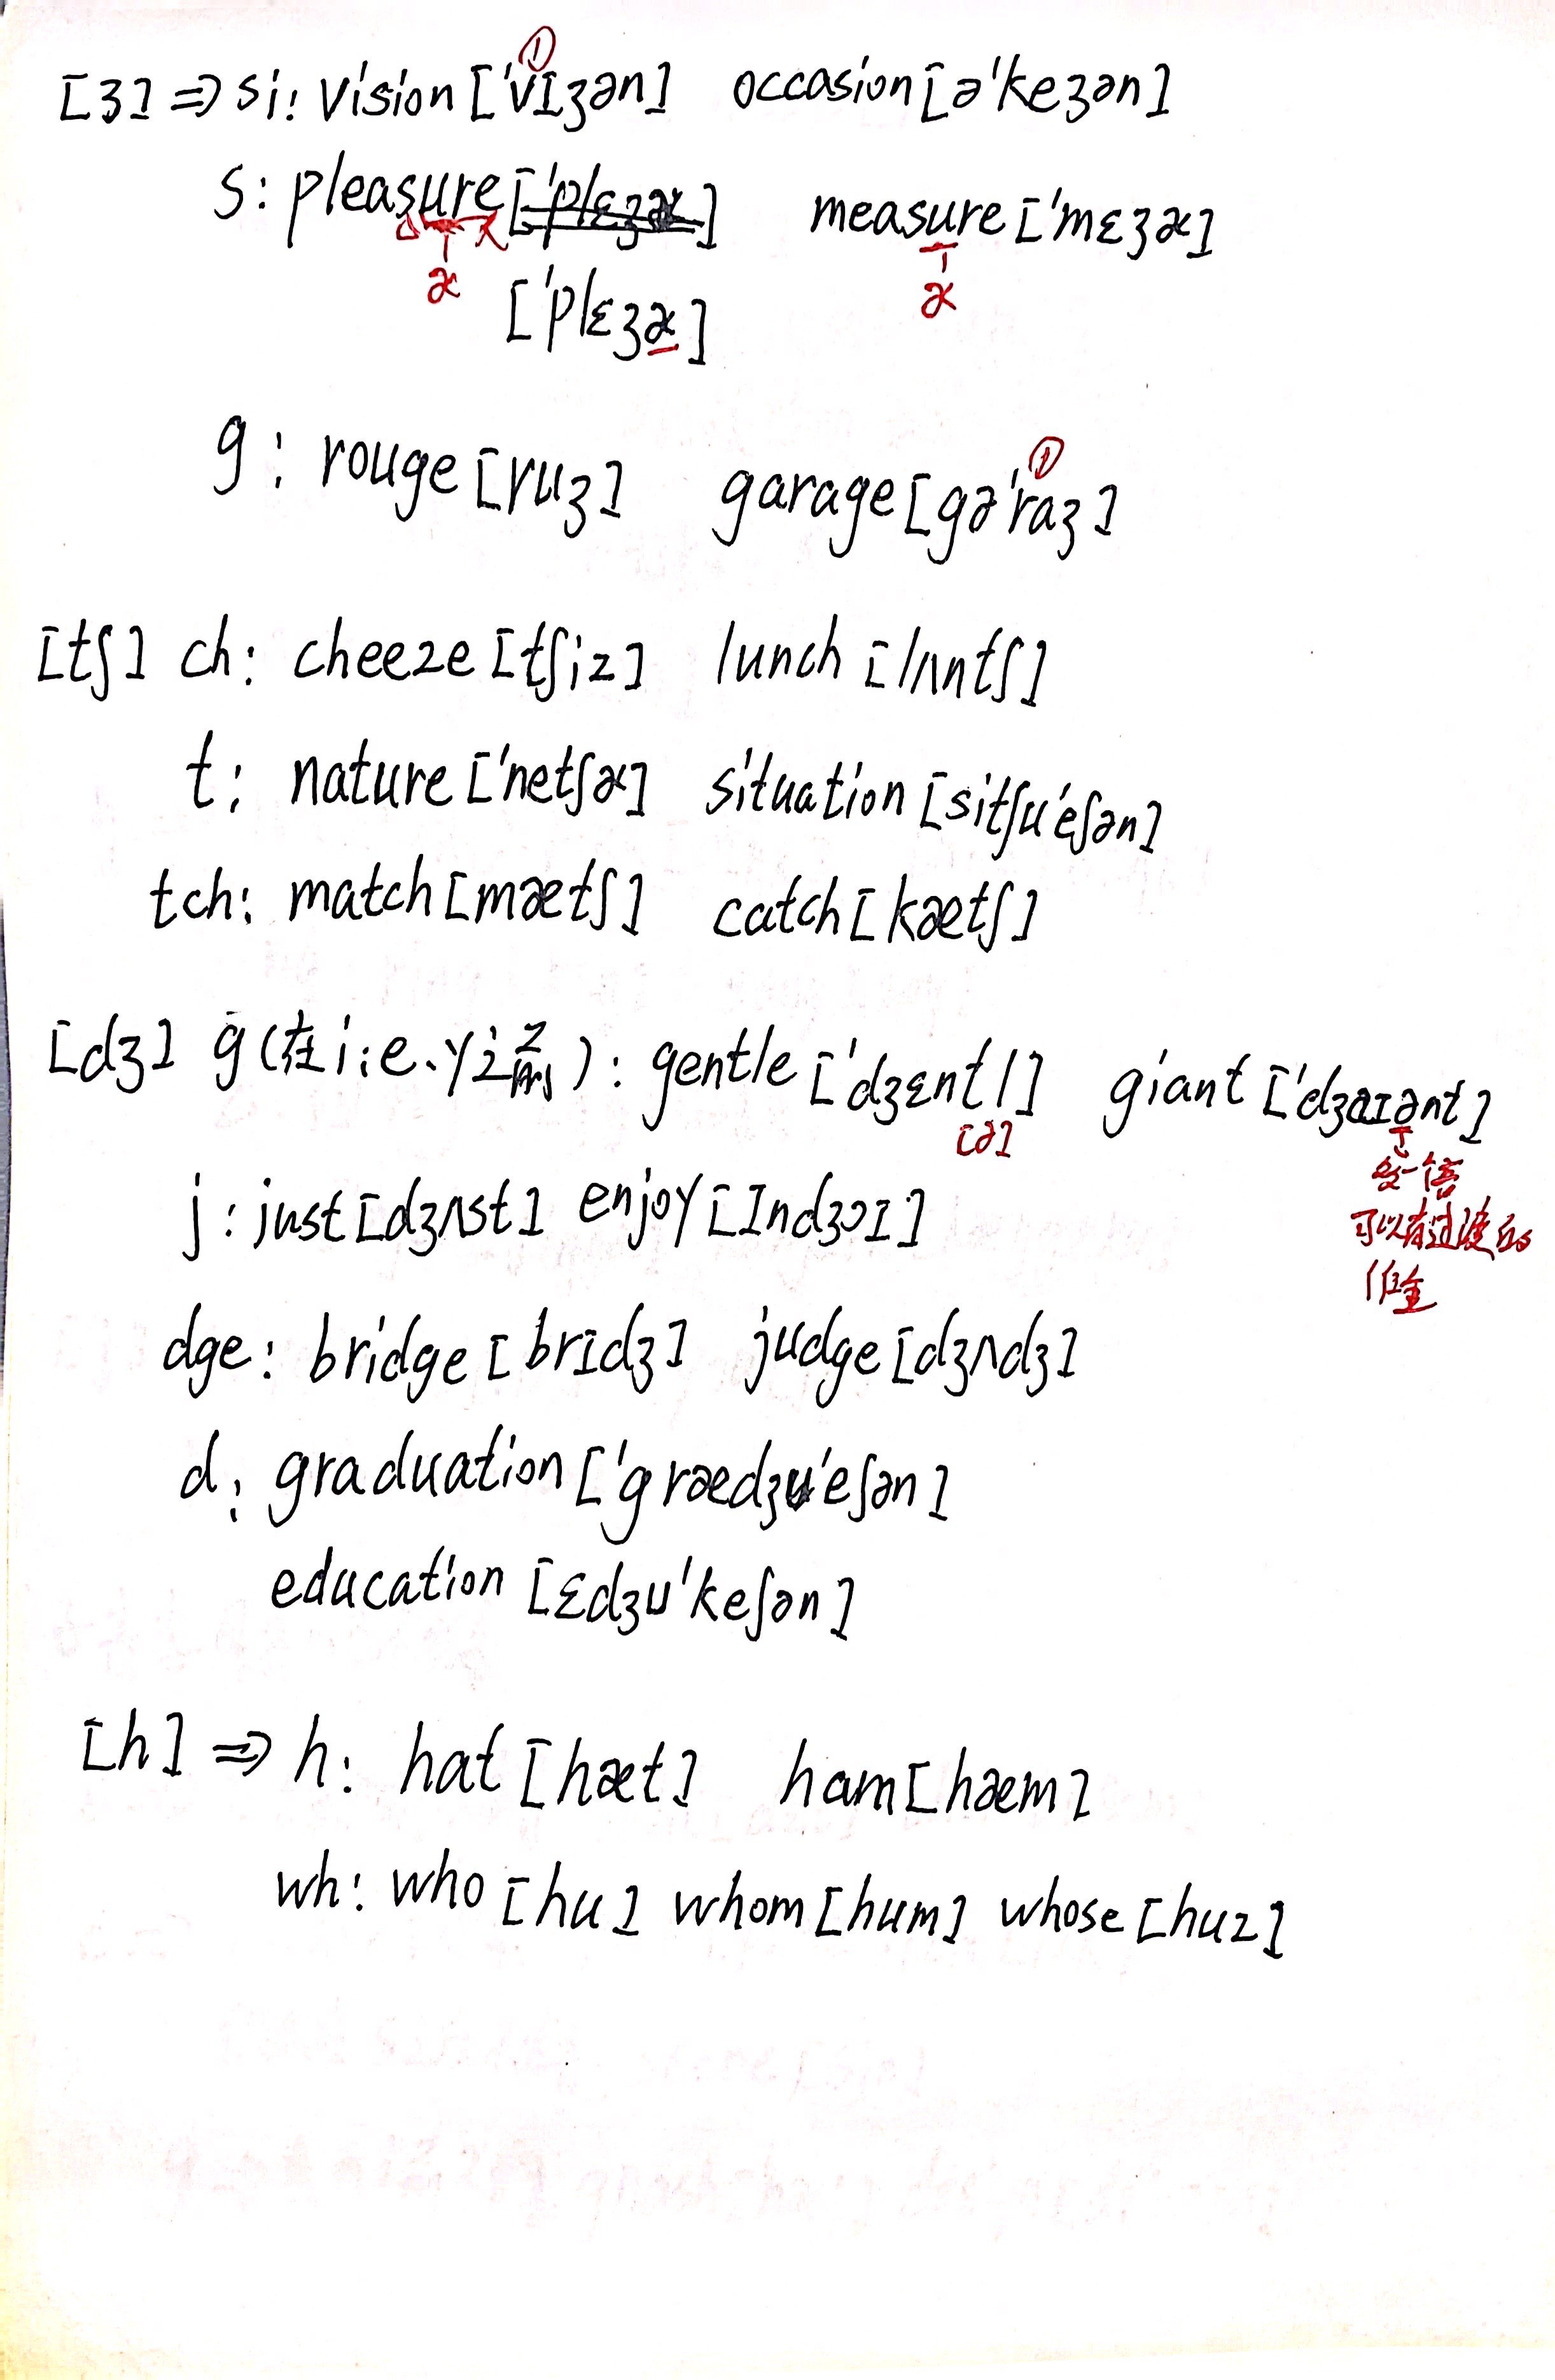 ①
[ʒ] ⇒ si: vision ['vɪʒən] occasion [ə'keʒən]
s: pleasure ['plɛʒɚ] measure ['mɛʒɚ]
ɚ ɚ
['plɛʒɚ]
①
g: rouge [ruʒ] garage [gə'raʒ]
[tʃ] ch: cheeze [tʃiz] lunch [lʌntʃ]
t: nature ['netʃɚ] situation [sitʃu'eʃən]
tch: match [mætʃ] catch [kætʃ]
[dʒ] g (在i、e、y之前): gentle ['dʒɛntl] giant ['dʒaɪənt]
[ə]
可以有过渡的
j: just [dʒʌst] enjoy [ɪndʒɔɪ]
dge: bridge [brɪdʒ] judge [dʒʌdʒ]
d: graduation ['grædʒu'eʃən]
education [ɛdʒu'keʃən]
[h] ⇒ h: hat [hæt] ham [hæm]
wh: who [hu] whom [hum] whose [huz]